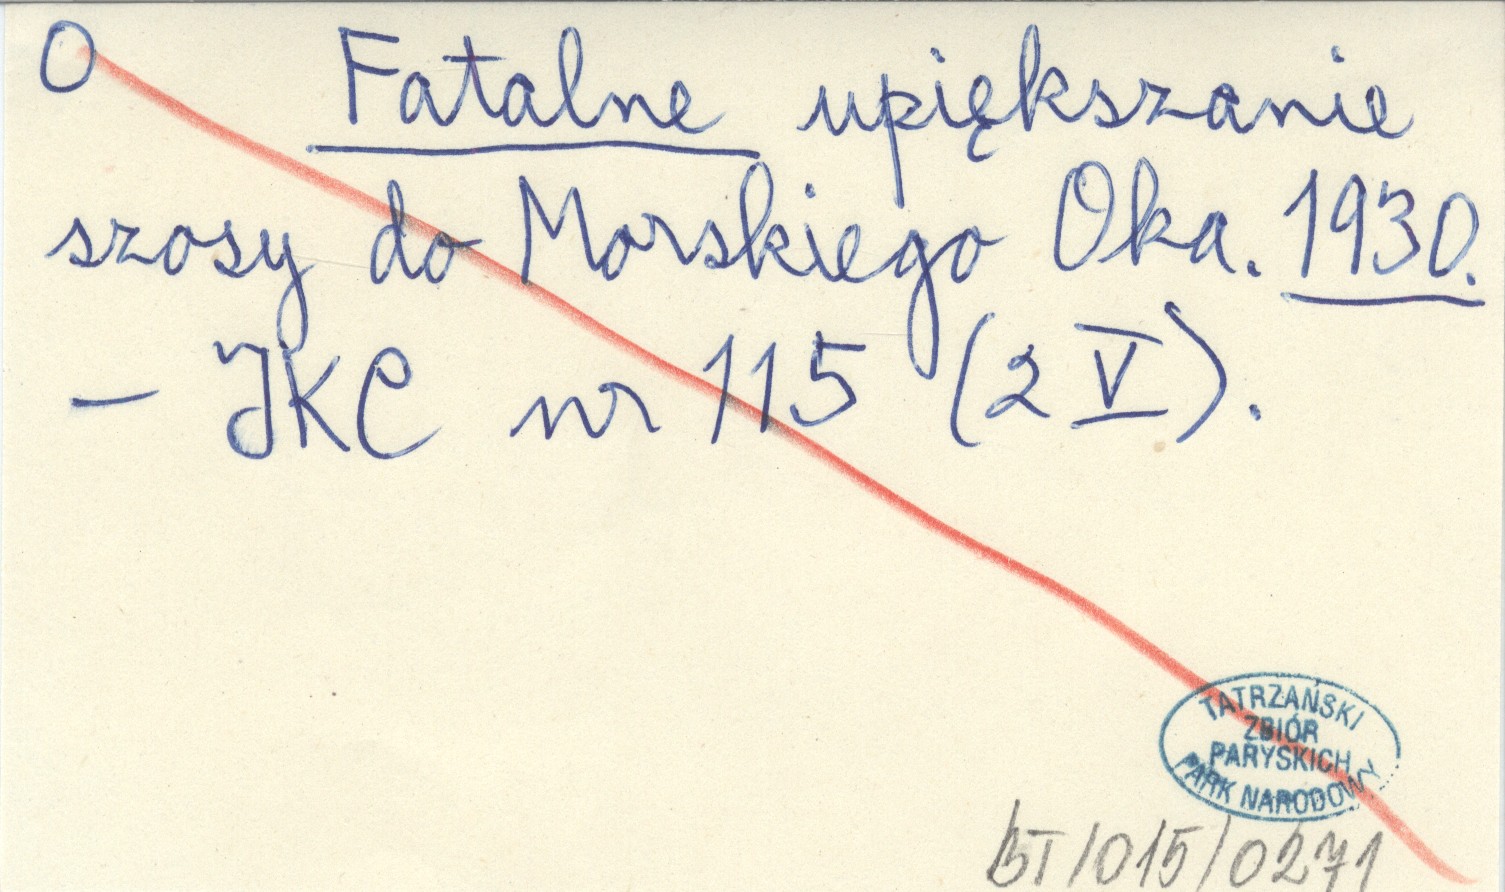 O Fatalne upiększanie
szosy do Morskiego Oka. 1930.
– JKC nr 115 (2 V).
TATRZAŃSKI
ZBIÓR
PARYSKICH
PARK NARODOWY
BT/015/0271